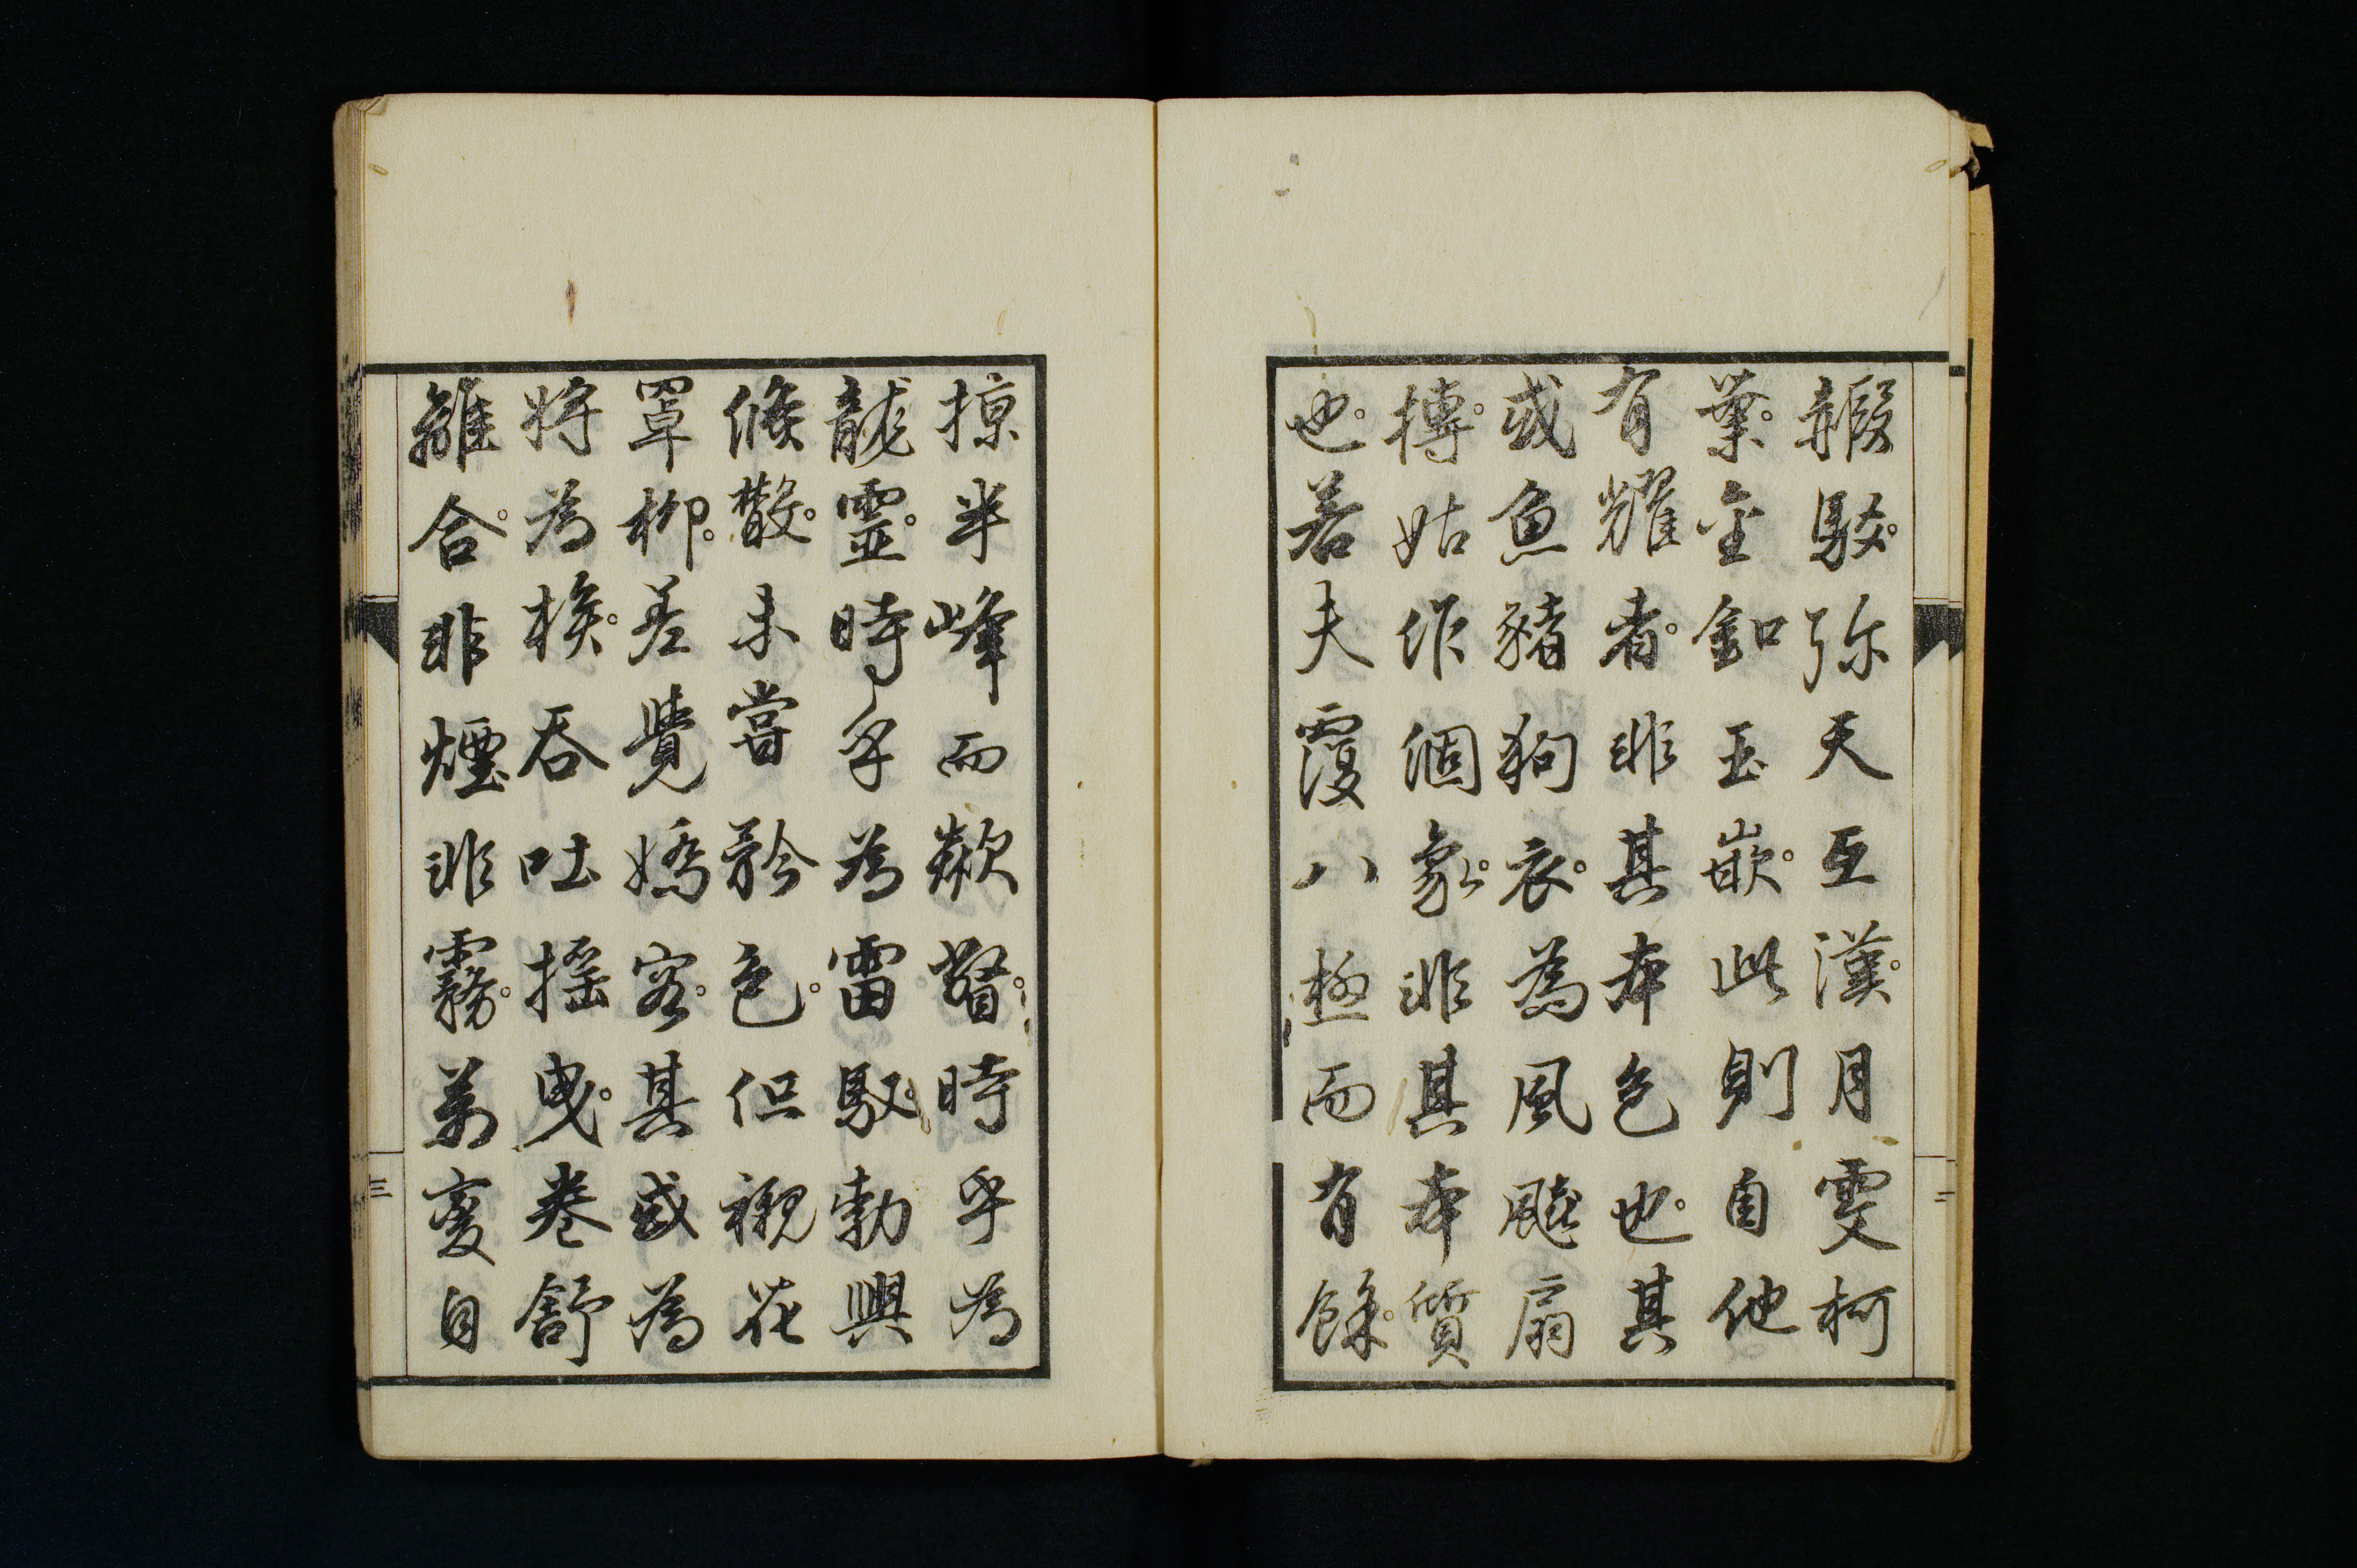 赮駮。弥天亙漢。月雯柯
葉。金釦玉嵌。此則自他
有耀者。非其本色也。其
或魚豬狗衣。為風飈扇
摶。姑作個象。非其本質
也。若夫覆八極而有餘。
二
掠半峰而歘瞥。時乎為
龍靈。時乎為雷馭。勃興
倏散。未嘗矜色。但襯花
罩柳。差覺嬌容。其或為
將為族。吞吐搖曳。卷舒
離合。非煙非霧。萬變自
三